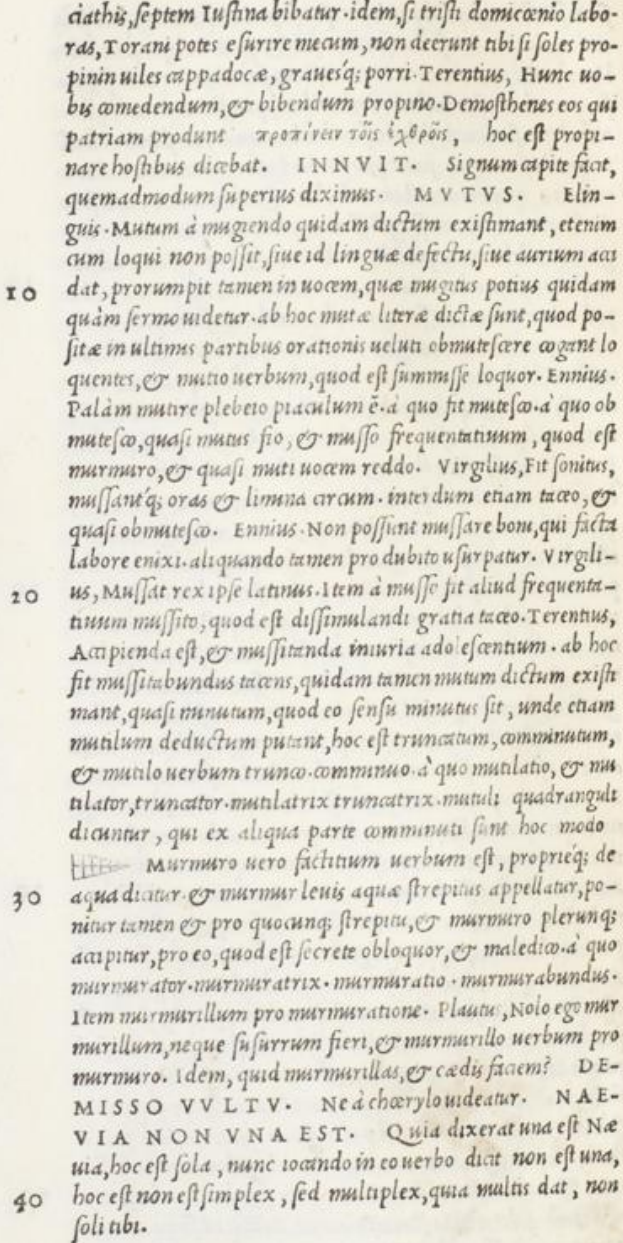 ciathis, septem Iustina bibatur. idem, si tristi domicœnio labo-
ras, Torani potes esurire mecum, non deerunt tibi si soles pro-
pinin uiles cappadocæ, grauesq; porri. Terentius, Hunc uo-
bis comedendum, & bibendum propino. Demosthenes eos qui
patriam produnt προπίνειν τοῖς ἐχθροῖς, hoc est propi-
nare hostibus dicebat. INNVIT. Signum capite facit,
quemadmodum superius diximus. MVTVS. Elin-
guis. Mutum à mugiendo quidam dictum existimant, etenim
cum loqui non possit, siue id linguæ defectu, siue aurium acci
10 dat, prorumpit tamen in uocem, quæ mugitus potius quidam
quàm sermo uidetur. ab hoc mutæ literæ dictæ sunt, quod po-
sitæ in ultimis partibus orationis ueluti obmutescere cogant lo
quentes, & mutio uerbum, quod est summisse loquor. Ennius.
Palàm mutire plebeio piaculum ē. à quo fit mutesco. à quo ob
mutesco, quasi mutus fio, & musso frequentatiuum, quod est
murmuro, & quasi muti uocem reddo. Virgilius, Fit sonitus,
mussantq; oras & limina circum. interdum etiam taceo, &
quasi obmutesco. Ennius. Non possunt mussare boni, qui facta
labore enixi. aliquando tamen pro dubito usurpatur. Virgili-
20 us, Mussat rex ipse latinus. Item à musso fit aliud frequenta-
tiuum mussito, quod est dissimulandi gratia taceo. Terentius,
Accipienda est, & mussitanda iniuria adolescentium. ab hoc
fit mussitabundus tacens, quidam tamen mutum dictum existi
mant, quasi minutum, quod eo sensu minutus sit, unde etiam
mutilum deductum putant, hoc est truncatum, comminutum,
& mutilo uerbum trunco. comminuo. à quo mutilatio, & mu
tilator, truncator. mutilatrix truncatrix. mutuli quadranguli
dicuntur, qui ex aliqua parte comminuti sunt hoc modo
Murmuro uero factitium uerbum est, proprieq; de
30 aqua dicitur. & murmur leuis aquæ strepitus appellatur, po-
nitur tamen & pro quocunq; strepitu, & murmuro plerunq;
accipitur, pro eo, quod est secrete obloquor, & maledico. à quo
murmurator. murmuratrix. murmuratio. murmurabundus.
Item murmurillum pro murmuratione. Plautus, Nolo ego mur
murillum, neque susurrum fieri, & murmurillo uerbum pro
murmuro. Idem, quid murmurillas, & cædis faciem? DE-
MISSO VVLTV. Ne à chœrylo uideatur. NAE-
VIA NON VNA EST. Quia dixerat una est Næ
uia, hoc est sola, nunc iocando in eo uerbo dicit non est una,
40 hoc est non est simplex, sed multiplex, quia multis dat, non
soli tibi.